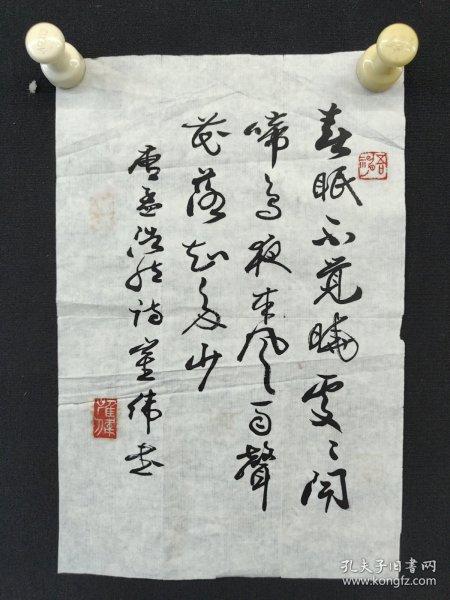 春眠不覚曉處々聞
啼鳥夜来風雨聲
花落知多少
唐孟浩然诗崔伟书
崔伟
孔夫子旧书网
www.kongfz.com